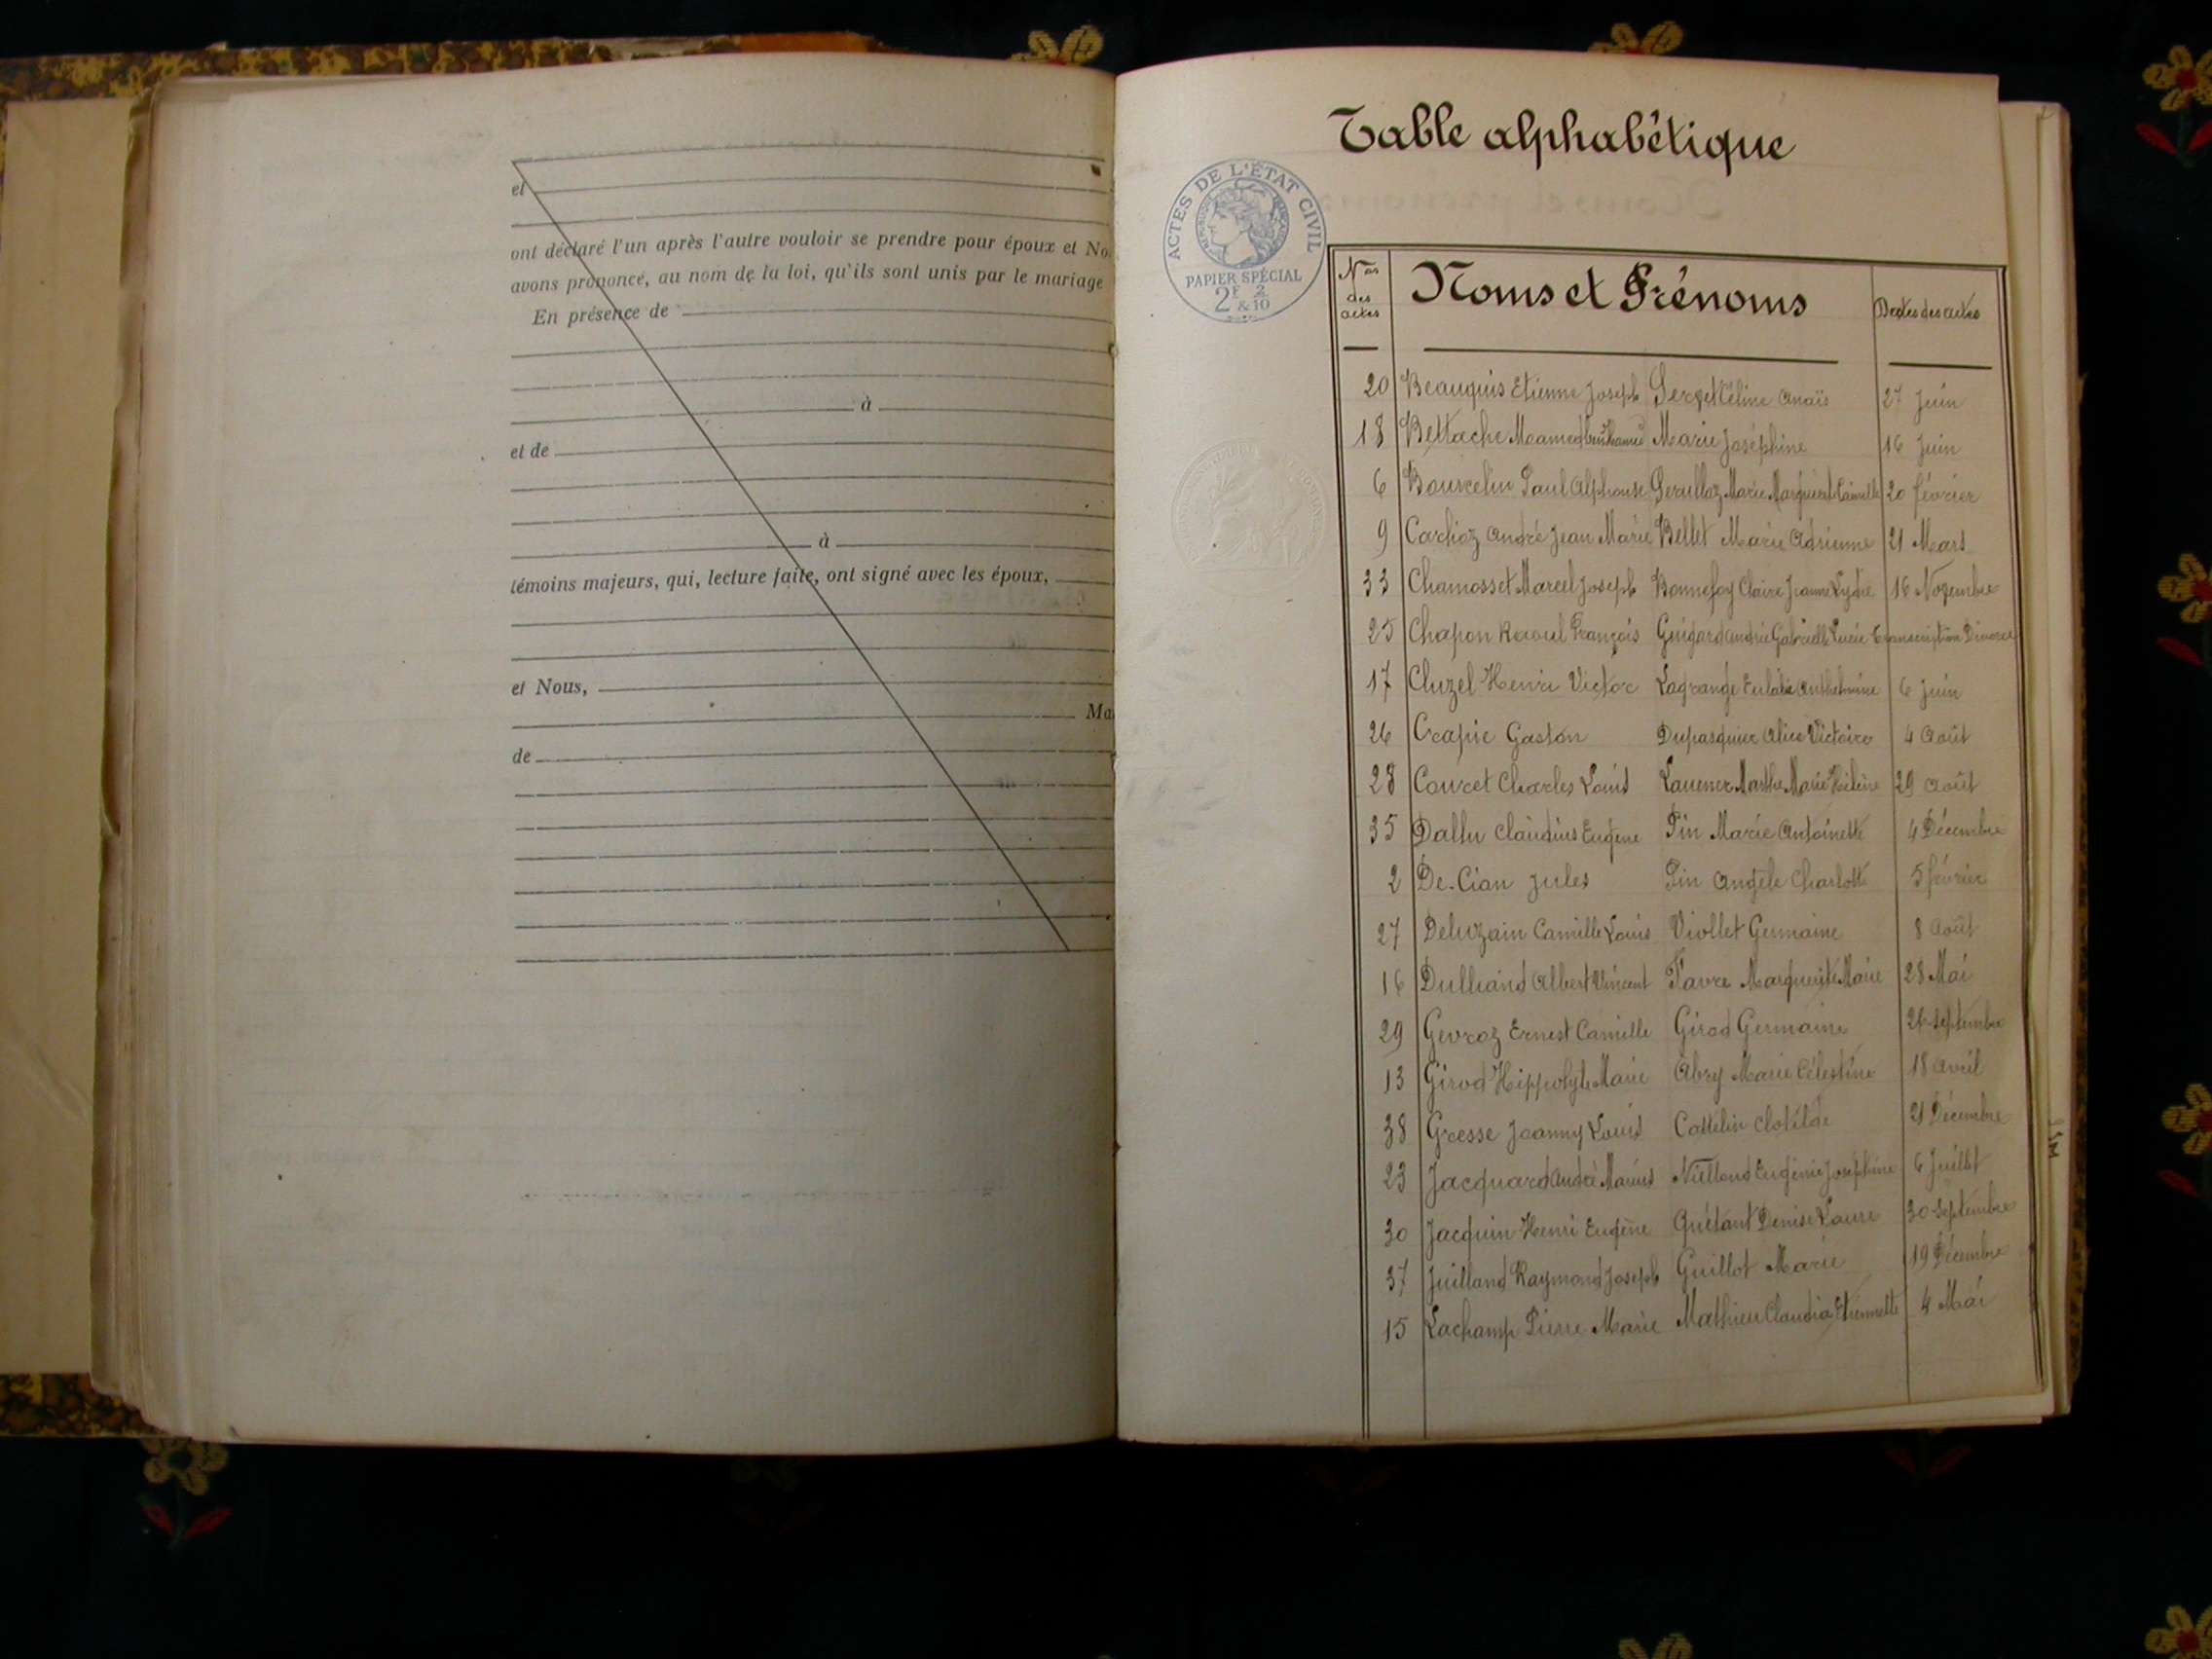 et
ont déclaré l'un après l'autre vouloir se prendre pour époux et No
avons prononcé, au nom de la loi, qu'ils sont unis par le mariage
En présence de
à
et de
à
témoins majeurs, qui, lecture faite, ont signé avec les époux,
et Nous,
Ma
de
Table alphabétique
ACTES DE L'ÉTAT CIVIL
RÉPUBLIQUE FRANÇAISE
PAPIER SPÉCIAL
2F 2
& 10
Nos des actes Noms et Prénoms Dates des actes
20 Beauquis Etienne Joseph Céline Anaïs 27 Juin
18 Bettache Marie Joséphine 16 Juin
6 Paul Alphonse Marie 20 février
9 André Jean Marie Bellet Marie Adrienne 21 Mars
33 Chamosset Marcel Joseph Bonnefoy Claire Jeanne Lydie 16 Novembre
25 Chapon Raoul François Lucie transcription Divorce
17 Cluzel Henri Victor Lagrange Eulalie Anthelmine 6 Juin
26 Crapie Gaston Dupasquier Alice Victoire 4 Août
28 Couret Charles Louis Marthe Marie Hélène 29 Août
35 Claudius Eugène Pin Marie Antoinette 4 Décembre
2 De-Cian Jules Pin Angèle Charlotte 5 février
27 Deluzain Camille Louis Viollet Germaine 8 Août
16 Dulliand Albert Vincent Favre Marguerite Marie 28 Mai
29 Gevroz Ernest Camille Girod Germaine septembre
13 Girod Hippolyte Marie Abry Marie Célestine 18 Avril
38 Gresse Joanny Louis Clotilde 21 Décembre
23 Jacquard André Marius Eugénie Joséphine 6 Juillet
30 Jacquin Henri Eugène Quétant Denise Laure 30 septembre
37 Juilland Raymond Joseph Guillot Marie 19 Décembre
15 Lachamp Pierre Marie Mathieu Claudia Etiennette 4 Mai